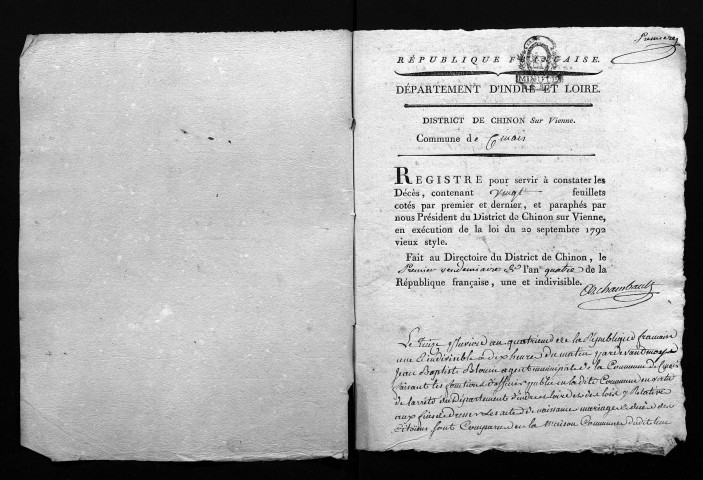 premier
RÉPUBLIQUE FRANÇAISE.
DÉPARTEMENT D'INDRE ET LOIRE.
DISTRICT DE CHINON Sur Vienne.
Commune de Cinais
REGISTRE pour servir à constater les
Décès, contenant vingt feuillets
cotés par premier et dernier, et paraphés par
nous Président du District de Chinon sur Vienne,
en exécution de la loi du 20 septembre 1792
vieux style.
Fait au Directoire du District de Chinon, le
Premier vendemiaire de l'an quatre de la
République française, une et indivisible.
Archambault
Le treize pluviose an quatrieme de la République francaise
une & indivisible a dix heure du matin pardevant moy
Jean Baptiste agent municipale de la Commune de
faisant les fonctions d'officier publique en la dite Commune en vertu
de larrété du Département d'indre et loire et des loix y Relative
aux fins de dresser les acte de naissance mariage & décès des
Citoiens sont Comparu en la maison Commune dudit lieu